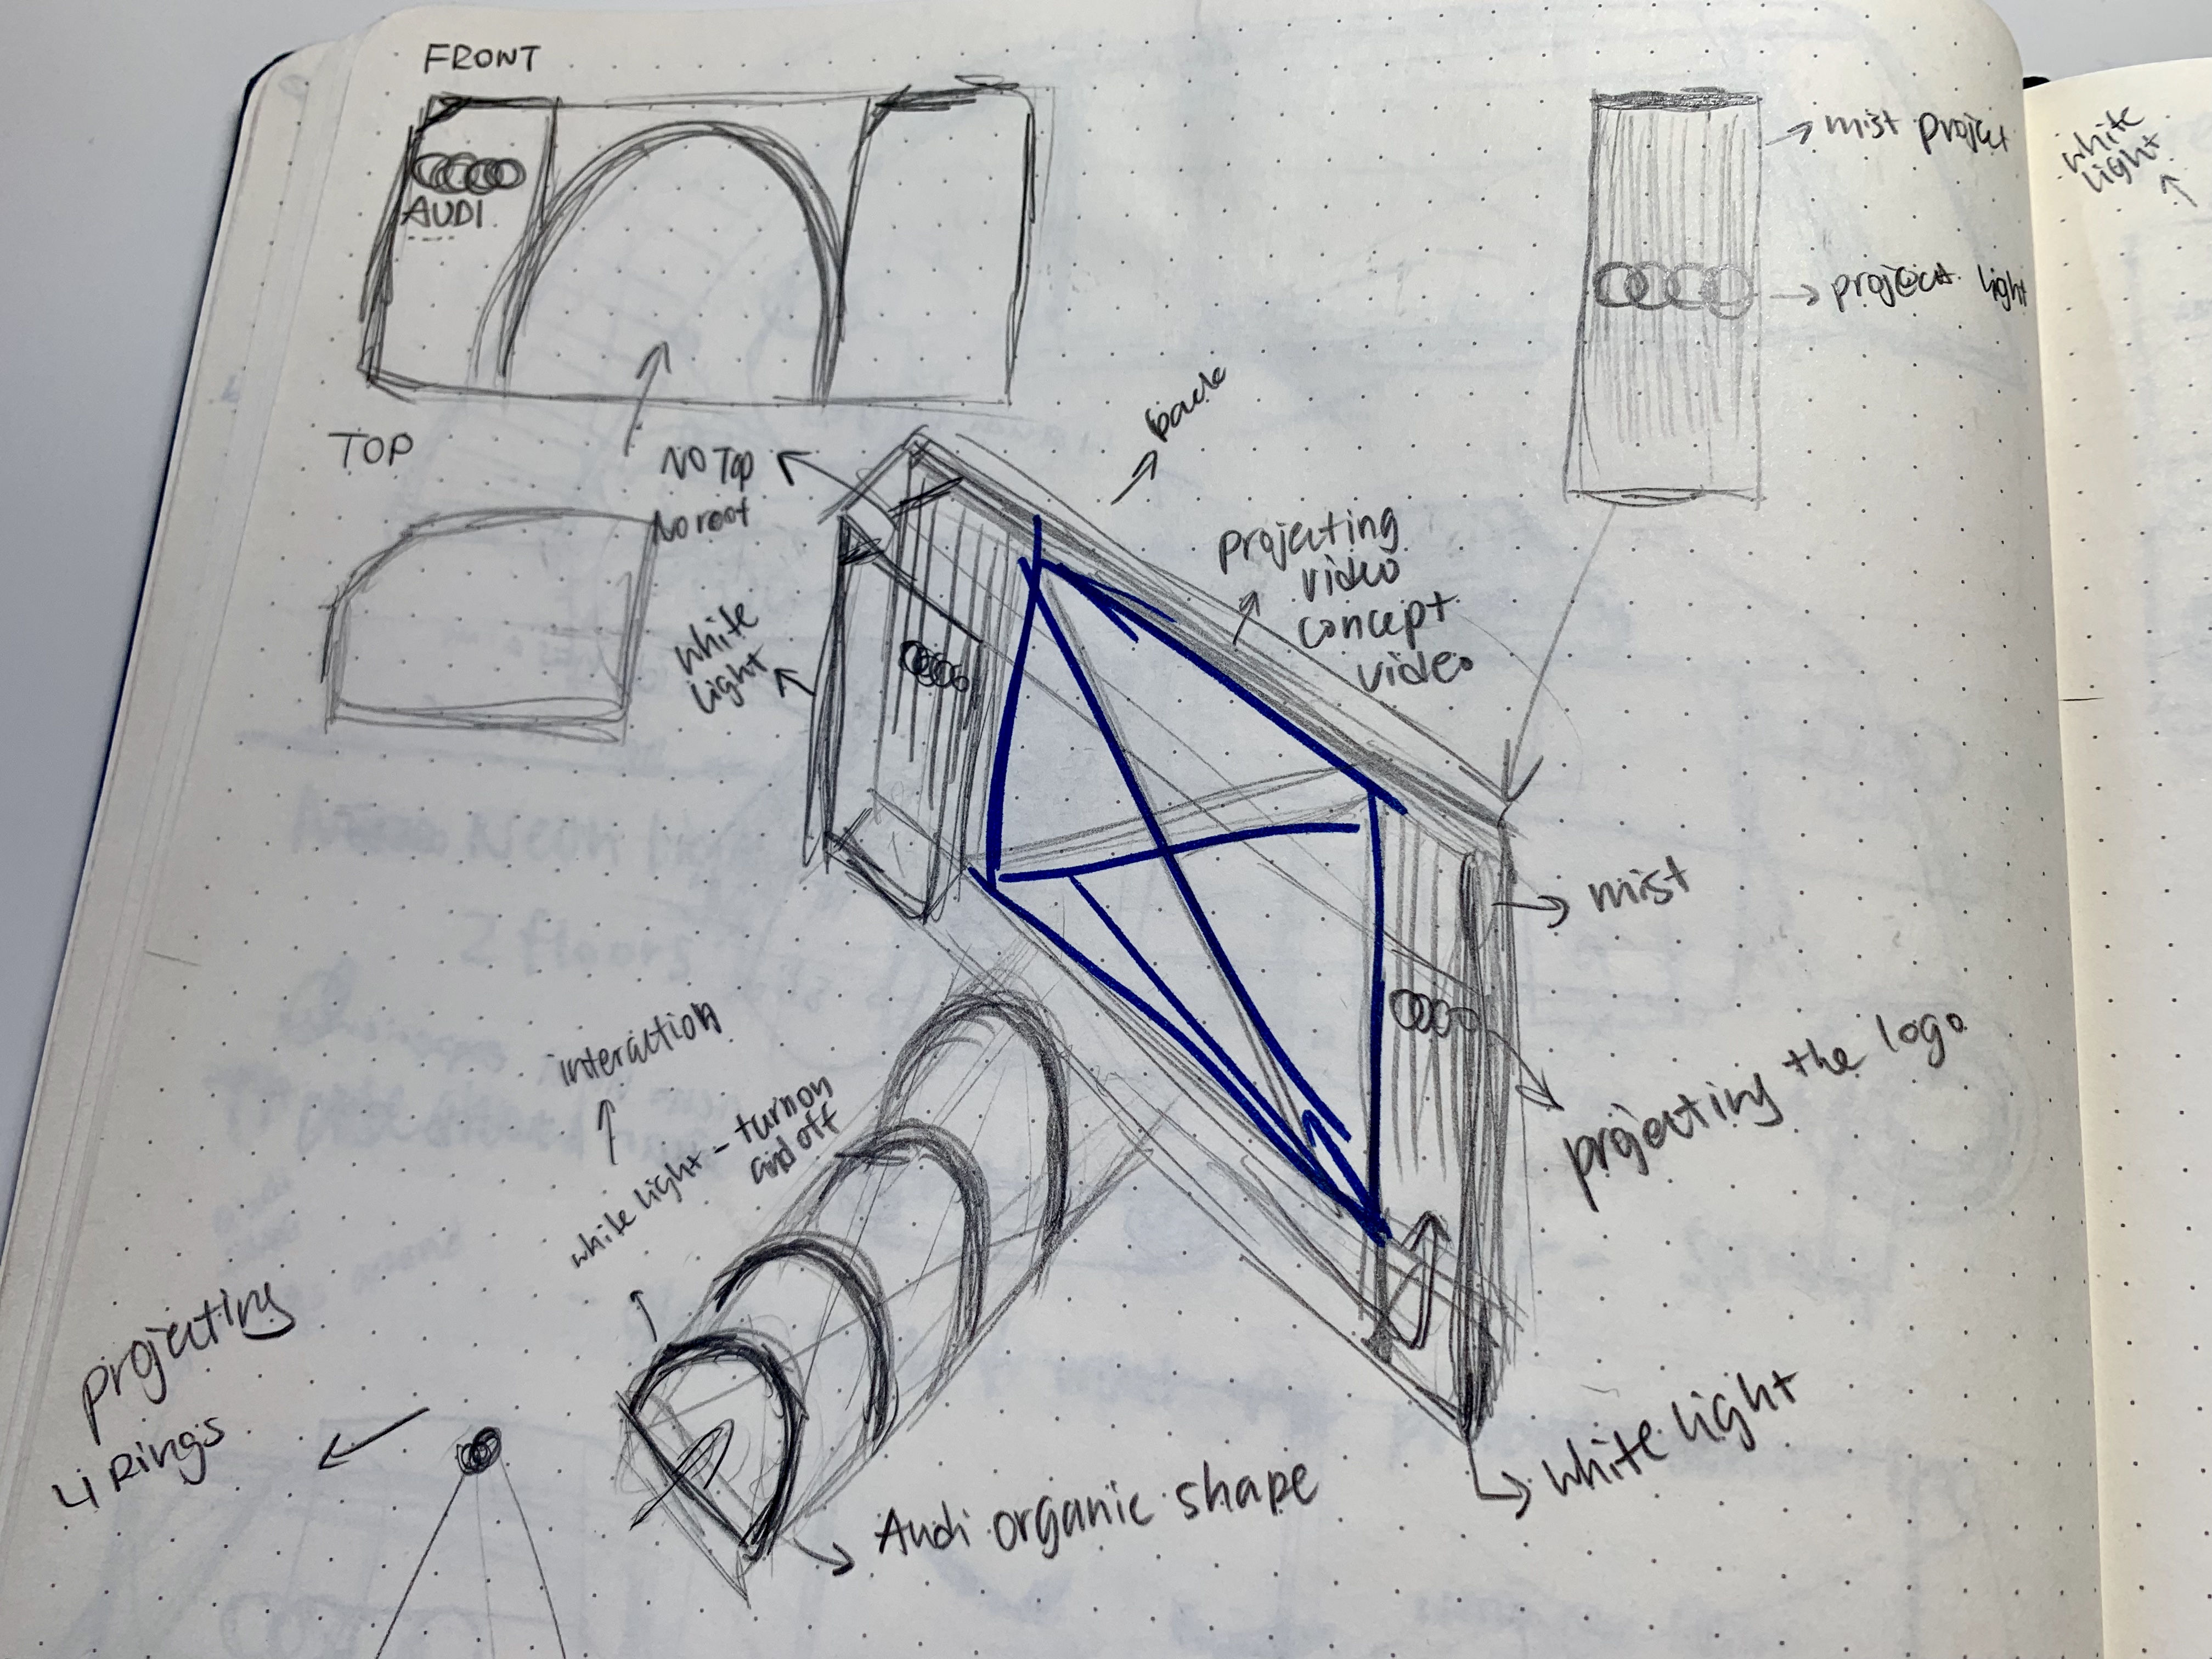 FRONT
AUDI
mist project
project light
white
light
TOP
NO Top
No roof
back
projecting
video
concept
video
white
light
mist
projecting the logo
interaction
white light - turn on
and off
projecting
4 Rings
Audi organic shape
white light
Neon
2 floors